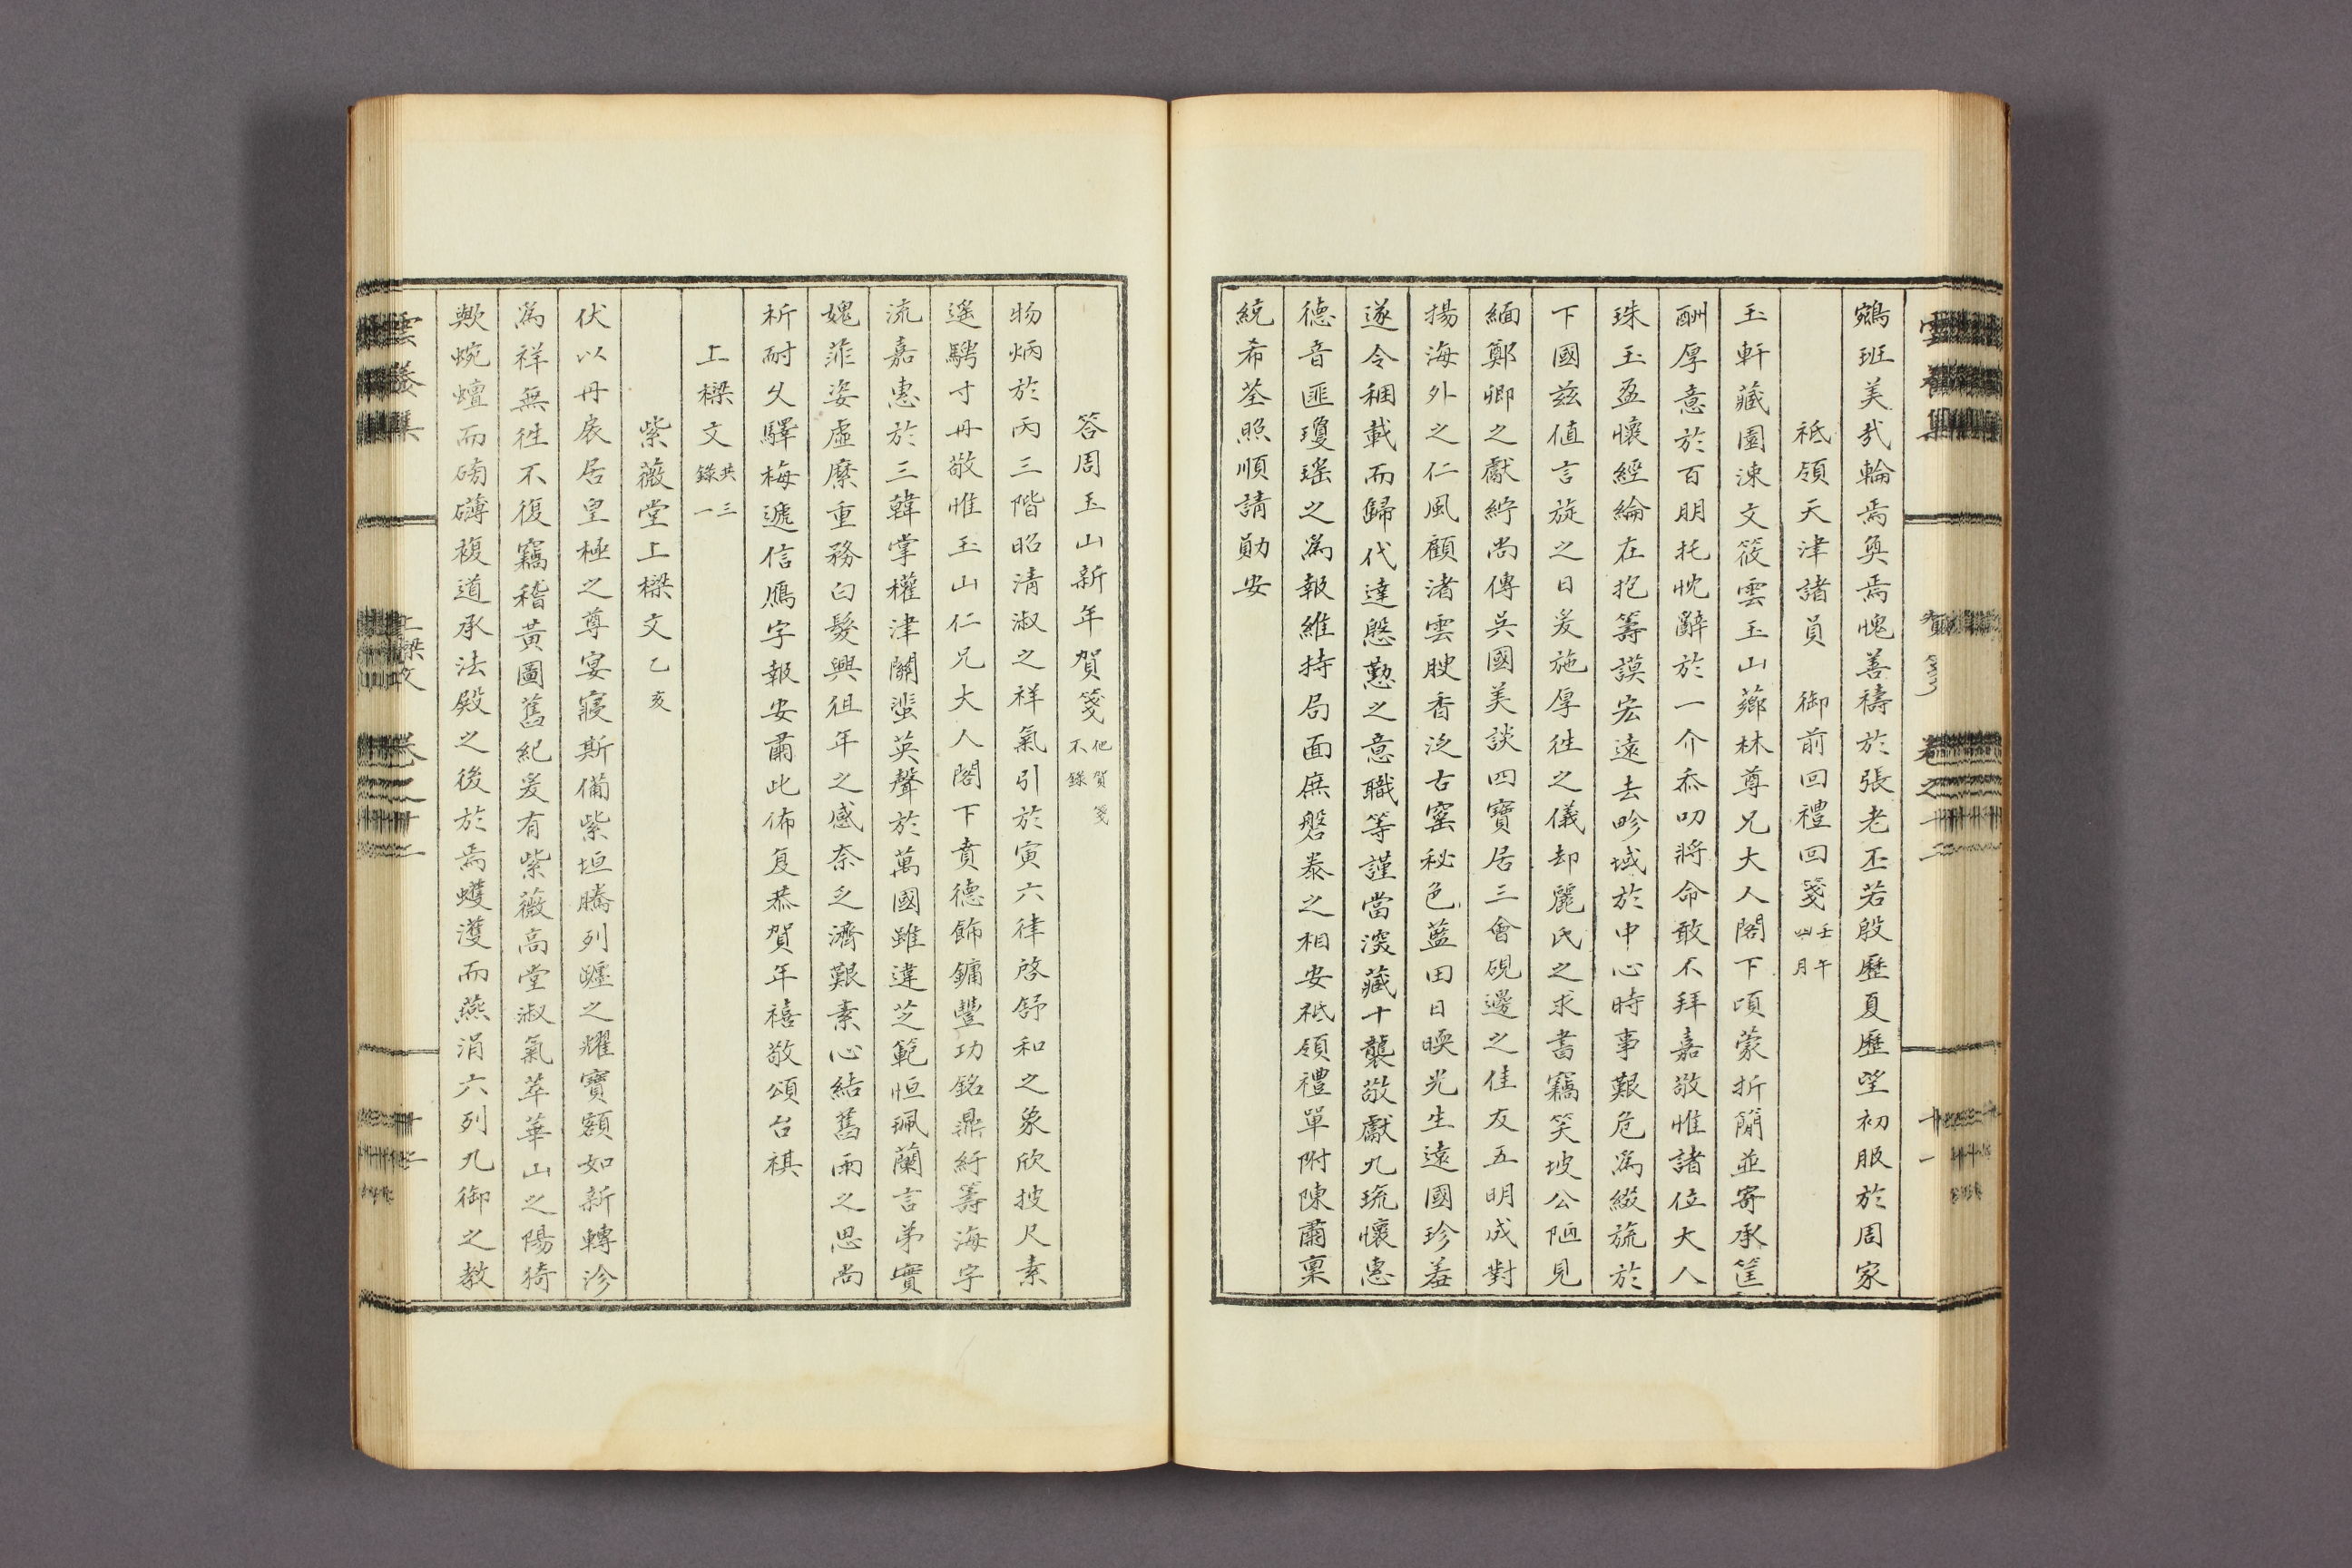 鵷班美哉輪焉奐焉愧善禱於張老丕若殷歷夏歷望初服於周家
祗領天津諸員 御前回禮回箋壬午四月
玉軒藏園涑文筱雲玉山薌林尊兄大人閣下頃蒙折簡並寄承筐
酬厚意於百朋托忱辭於一介忝叨將命敢不拜嘉敬惟諸位大人
珠玉盈懷經綸在抱籌謨宏遠去畛域於中心時事艱危爲綴旒於
下國玆値言旋之日爰施厚往之儀却麗氏之求書竊笑坡公陋見
緬鄭卿之獻紵尚傳吳國美談四寶居三會硯邊之佳友五明成對
揚海外之仁風顧渚雲腴香泛古窰秘色藍田日暎光生遠國珍羞
遂令稇載而歸代達慇懃之意職等謹當深藏十襲敬獻九琉懷惠
德音匪瓊瑤之爲報維持局面庶磐泰之相安祗領禮單附陳肅稟
統希荃照順請勛安
答周玉山新年賀箋他賀箋不錄
物炳於丙三階昭淸淑之祥氣引於寅六律啓舒和之象欣披尺素
遙騁寸丹敬惟玉山仁兄大人閣下賁德飾鏞豐功銘鼎紆籌海宇
流嘉惠於三韓掌權津關蜚英聲於萬國雖違芝範恒珮蘭言弟實
媿菲姿虛縻重務白髮興徂年之感奈乏濟艱素心結舊雨之思尚
祈耐久驛梅遞信鴈字報安肅此佈復恭賀年禧敬頌台祺
上樑文共三錄一
紫薇堂上樑文乙亥
伏以丹扆居皇極之尊宴寢斯備紫垣騰列躔之耀寶額如新轉沴
爲祥無往不復竊稽黃圖舊紀爰有紫薇高堂淑氣萃華山之陽猗
歟蜿蟺而磅礴複道承法殿之後於焉蠖濩而燕涓六列九御之敎